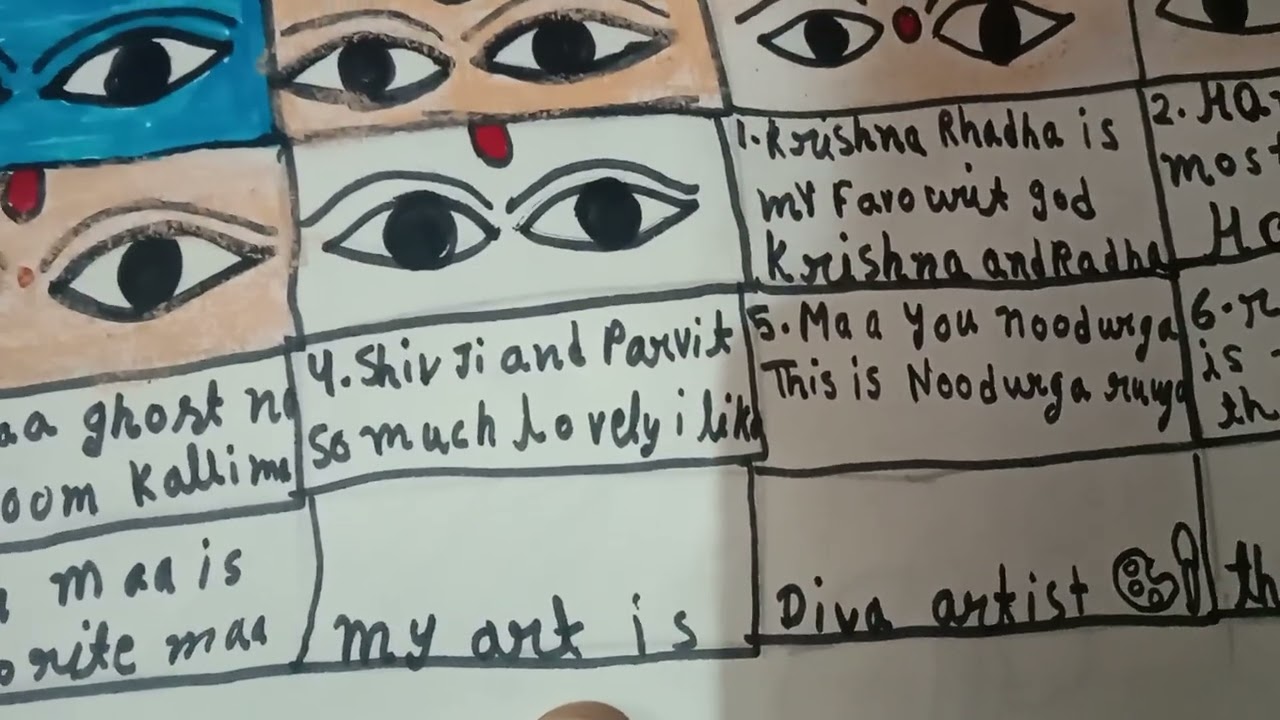 1. Krishna Rhadha is
my Favowrit god
Krishna and Radha
2. Ha
most
Ha
aa ghost no
oom Kallima
4. Shiv Ji and Parvit
So much lovely i like
5. Maa you noodurga
This is Noodurga
6.
is
th
maa is
orite maa
my art is
Diva artist
th